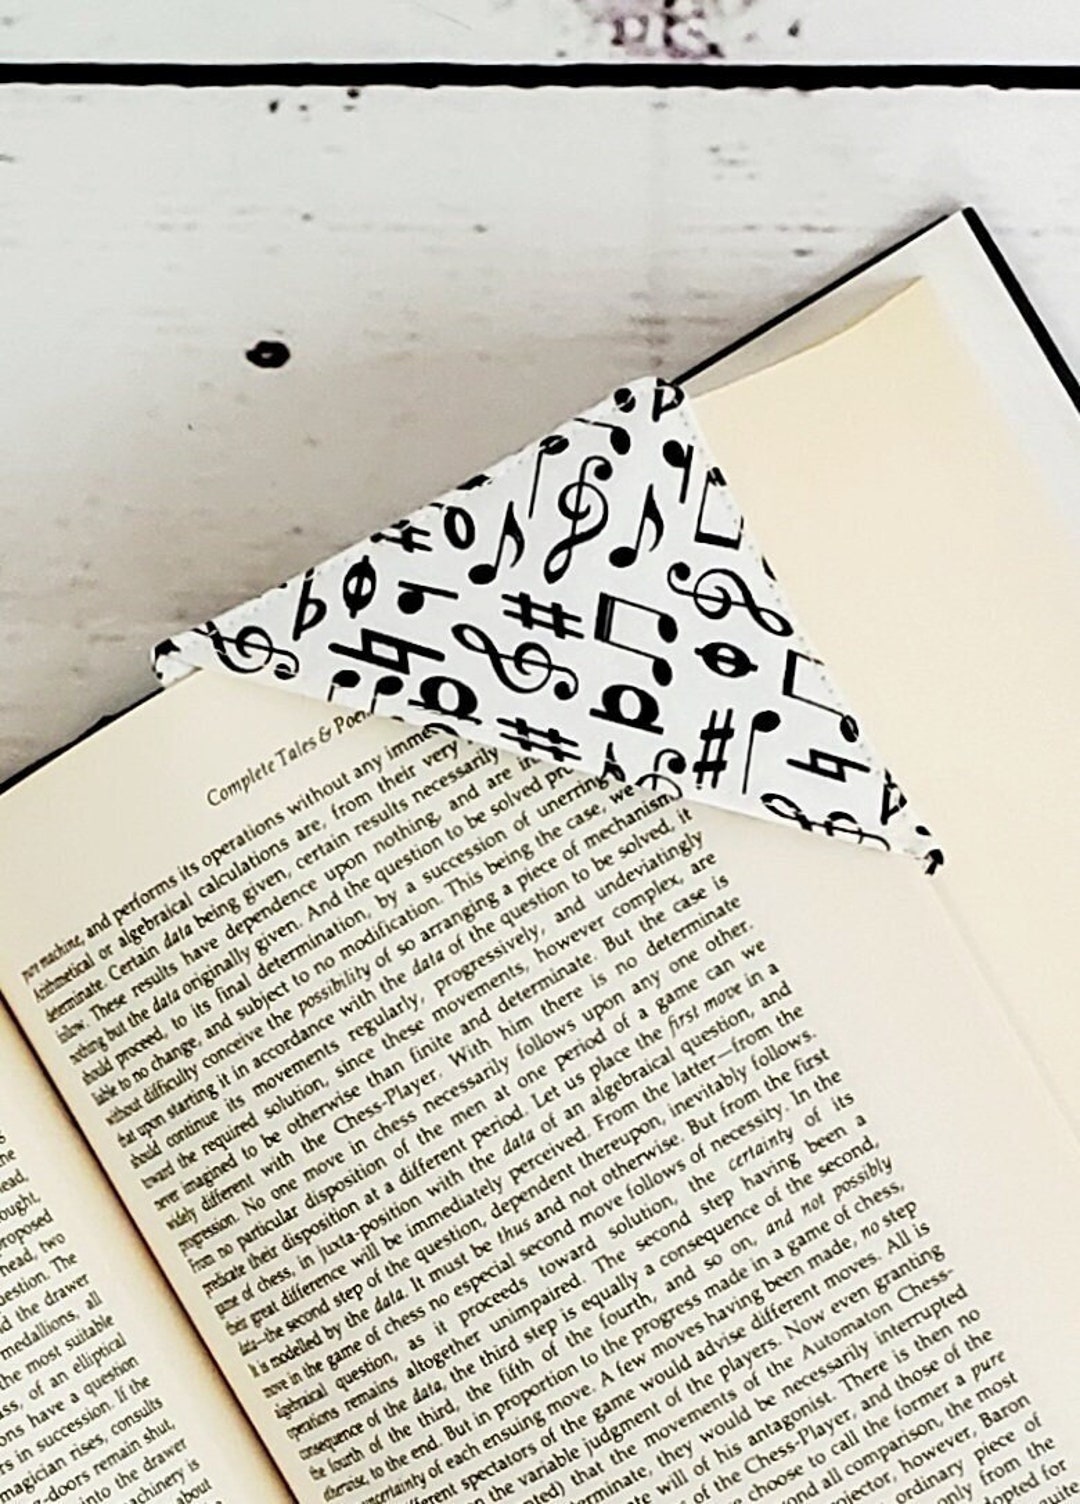 ead,
ought,
proposed
head, two
uestion. The
d the drawer
medallions, all
the most suitable
ss, of an elliptical
ons have a question
rs in succession. If the
magician rises, consults
-doors remain shut,
into the drawer
achinery is
about
Complete Tales & Poe
pure machine, and performs its operations without any imme
Arithmetical or algebraical calculations are, from their very
determinate. Certain data being given, certain results necessarily
follow. These results have dependence upon nothing, and are in
nothing but the data originally given. And the question to be solved pro
should proceed, to its final determination, by a succession of unerring
liable to no change, and subject to no modification. This being the case, we
without difficulty conceive the possibility of so arranging a piece of mechanism
that upon starting it in accordance with the data of the question to be solved, it
should continue its movements regularly, progressively, and undeviatingly
toward the required solution, since these movements, however complex, are
never imagined to be otherwise than finite and determinate. But the case is
widely different with the Chess-Player. With him there is no determinate
progression. No one move in chess necessarily follows upon any one other.
From no particular disposition of the men at one period of a game can we
predicate their disposition at a different period. Let us place the first move in a
game of chess, in juxta-position with the data of an algebraical question, and
their great difference will be immediately perceived. From the latter—from the
data—the second step of the question, dependent thereupon, inevitably follows.
It is modelled by the data. It must be thus and not otherwise. But from the first
move in the game of chess no especial second move follows of necessity. In the
algebraical question, as it proceeds toward solution, the certainty of its
operations remains altogether unimpaired. The second step having been a
consequence of the data, the third step is equally a consequence of the second,
the fourth of the third, the fifth of the fourth, and so on, and not possibly
otherwise, to the end. But in proportion to the progress made in a game of chess,
uncertainty of each ensuing move. A few moves having been made, no step
fferent spectators of the game would advise different moves. All is
the variable judgment of the players. Now even granting
nted) that the movements of the Automaton Chess-
terminate, they would be necessarily interrupted
te will of his antagonist. There is then no
of the Chess-Player, and those of the
choose to call the former a pure
nd all comparison, the most
ojector, however, Baron
ordinary piece of
only from the
dopted for